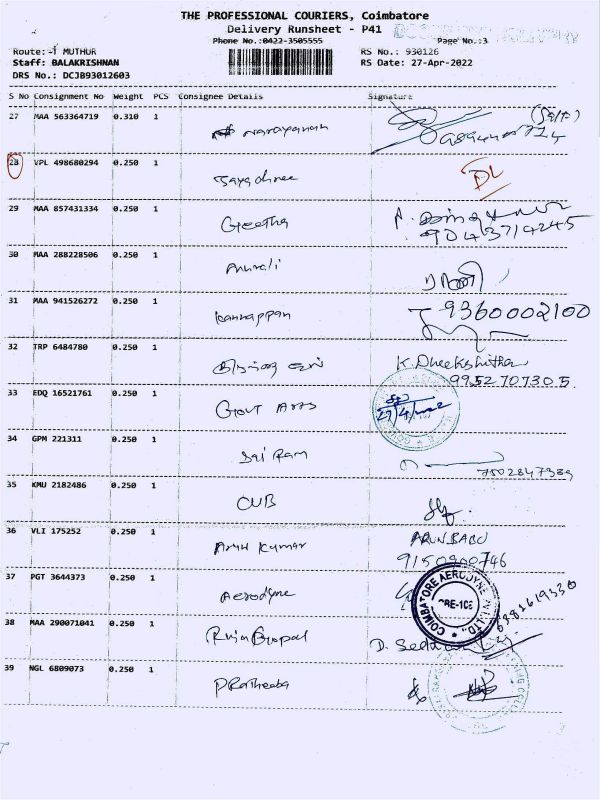 THE PROFESSIONAL COURIERS, Coimbatore
Delivery Runsheet - P41
Phone No.:0422-3505555
Page No.:3
Route:-1 MUTHUR
RS No.: 930126
Staff: BALAKRISHNAN
RS Date: 27-Apr-2022
DRS No.: DCJB93012603
S No Consignment No Weight PCS Consignee Details Signature
27 MAA 563364719 0.310 1 Narayanan (Self)
28 VPL 498680294 0.250 1 Jayashree DL
29 MAA 857431334 0.250 1 Geetha
9043714245
30 MAA 288228506 0.250 1 Murali
31 MAA 941526272 0.250 1 Kannappan 9360002100
32 TRP 6484780 0.250 1 K. Dheekshitha
9952707305
33 EDQ 16521761 0.250 1 Govt Arts
27/4/2022
34 GPM 221311 0.250 1 Sai Ram
7502847389
35 KMU 2182486 0.250 1 CUB
36 VLI 175252 0.250 1 Arun Kumar ARUN BABU
9150900746
37 PGT 3644373 0.250 1 Aerodyne
COIMBATORE AERODYNE PVT. LTD.,
CBE-108
6381619330
38 MAA 290071041 0.250 1 Raja Gopal
39 NGL 6809073 0.250 1 Pratheeba